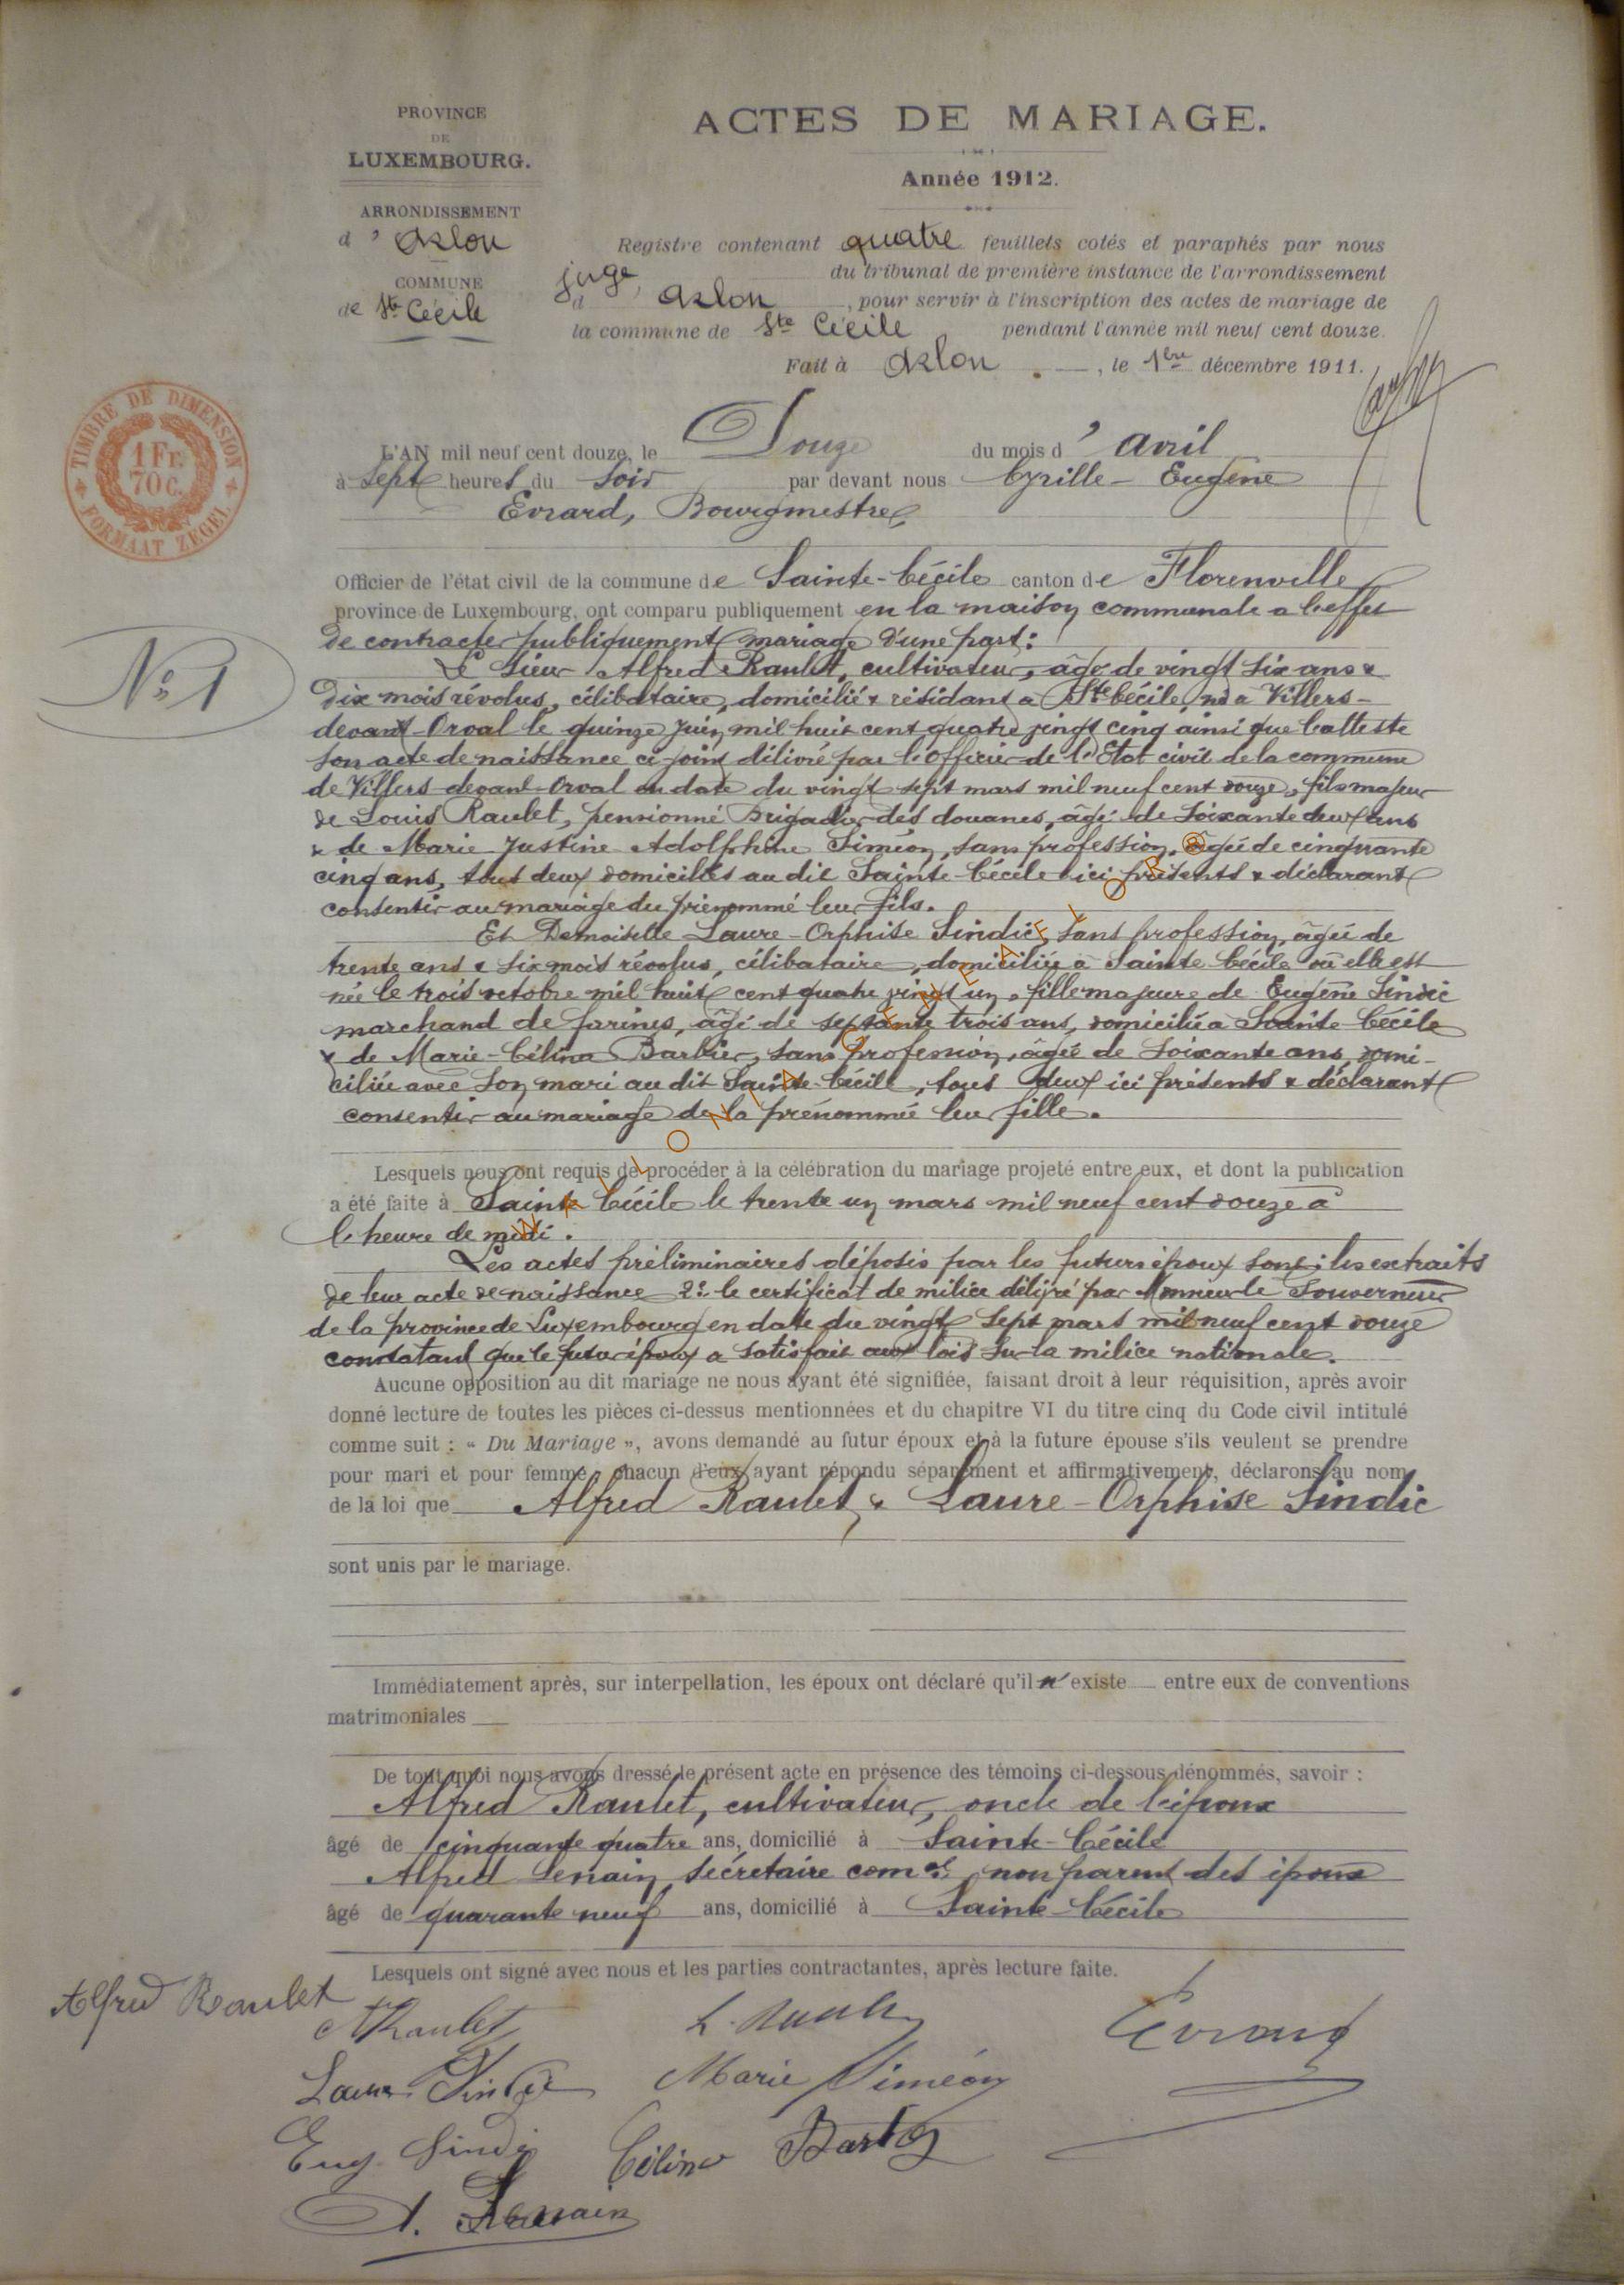 PROVINCE
DE
LUXEMBOURG.
ARRONDISSEMENT
d'Arlon
COMMUNE
de Ste Cécile
ACTES DE MARIAGE.
Année 1912.
Registre contenant quatre feuillets cotés et paraphés par nous
juge du tribunal de première instance de l'arrondissement
d'Arlon, pour servir à l'inscription des actes de mariage de
la commune de Ste Cécile pendant l'année mil neuf cent douze.
Fait à Arlon, le 1er décembre 1911.
TIMBRE DE DIMENSION
1 Fr.
70 C.
FORMAAT ZEGEL
L'AN mil neuf cent douze, le Douze du mois d'avril
à sept heures du soir par devant nous Cyrille-Eugène
Evrard, Bourgmestre,
Officier de l'état civil de la commune de Sainte-Cécile canton de Florenville
province de Luxembourg, ont comparu publiquement en la maison communale a l'effet
de contracter publiquement mariage d'une part:
N° 1
Le Sieur Alfred Raulet, cultivateur, âgé de vingt six ans &
dix mois révolus, célibataire, domicilié & résidant a Ste Cécile, né a Villers-
devant-Orval le quinze juin mil huit cent quatre vingt cinq ainsi que l'atteste
son acte de naissance ci-joint délivré par l'officier de l'Etat civil de la commune
de Villers-devant-Orval en date du vingt sept mars mil neuf cent douze, fils majeur
de Louis Raulet, pensionné Brigadier des douanes, âgé de soixante deux ans
& de Marie Justine Adolphine Siméon, sans profession, âgée de cinquante
cinq ans, tous deux domiciliés au dit Sainte-Cécile ici présents & déclarant
consentir au mariage du prénommé leur fils.
Et Demoiselle Laure-Orphise Sindic, sans profession, âgée de
trente ans & six mois révolus, célibataire, domiciliée a Sainte-Cécile où elle est
née le trois octobre mil huit cent quatre vingt un, fille majeure de Eugène Sindic
marchand de farines, âgé de septante trois ans, domicilié a Sainte-Cécile
& de Marie-Célina Barbier, sans profession, âgée de soixante ans, domi-
ciliée avec son mari au dit Sainte-Cécile, tous deux ici présents & déclarant
consentir au mariage de la prénommée leur fille.
Lesquels nous ont requis de procéder à la célébration du mariage projeté entre eux, et dont la publication
a été faite à Sainte Cécile le trente un mars mil neuf cent douze à
l'heure de midi.
Les actes préliminaires déposés par les futurs époux sont: les extraits
de leur acte de naissance 2° le certificat de milice délivré par Monsieur le Gouverneur
de la province de Luxembourg en date du vingt sept mars mil neuf cent douze
constatant que le futur époux a satisfait aux lois sur la milice nationale.
Aucune opposition au dit mariage ne nous ayant été signifiée, faisant droit à leur réquisition, après avoir
donné lecture de toutes les pièces ci-dessus mentionnées et du chapitre VI du titre cinq du Code civil intitulé
comme suit : « Du Mariage », avons demandé au futur époux et à la future épouse s'ils veulent se prendre
pour mari et pour femme, chacun d'eux ayant répondu séparément et affirmativement, déclarons au nom
de la loi que Alfred Raulet & Laure-Orphise Sindic
sont unis par le mariage.
Immédiatement après, sur interpellation, les époux ont déclaré qu'il n'existe entre eux de conventions
matrimoniales
De tout quoi nous avons dressé le présent acte en présence des témoins ci-dessous dénommés, savoir :
Alfred Raulet, cultivateur, oncle de l'époux
âgé de cinquante quatre ans, domicilié à Sainte-Cécile
Alfred Lenain, secrétaire comal, non parent des époux
âgé de quarante neuf ans, domicilié à Sainte-Cécile
Lesquels ont signé avec nous et les parties contractantes, après lecture faite.
Alfred Raulet
A Raulet L. Raulet Evrard
Laure Sindic Marie Siméon
Eug. Sindic Célina Barbier
A. Lenain
WALLONIA GENEAFLOR ®